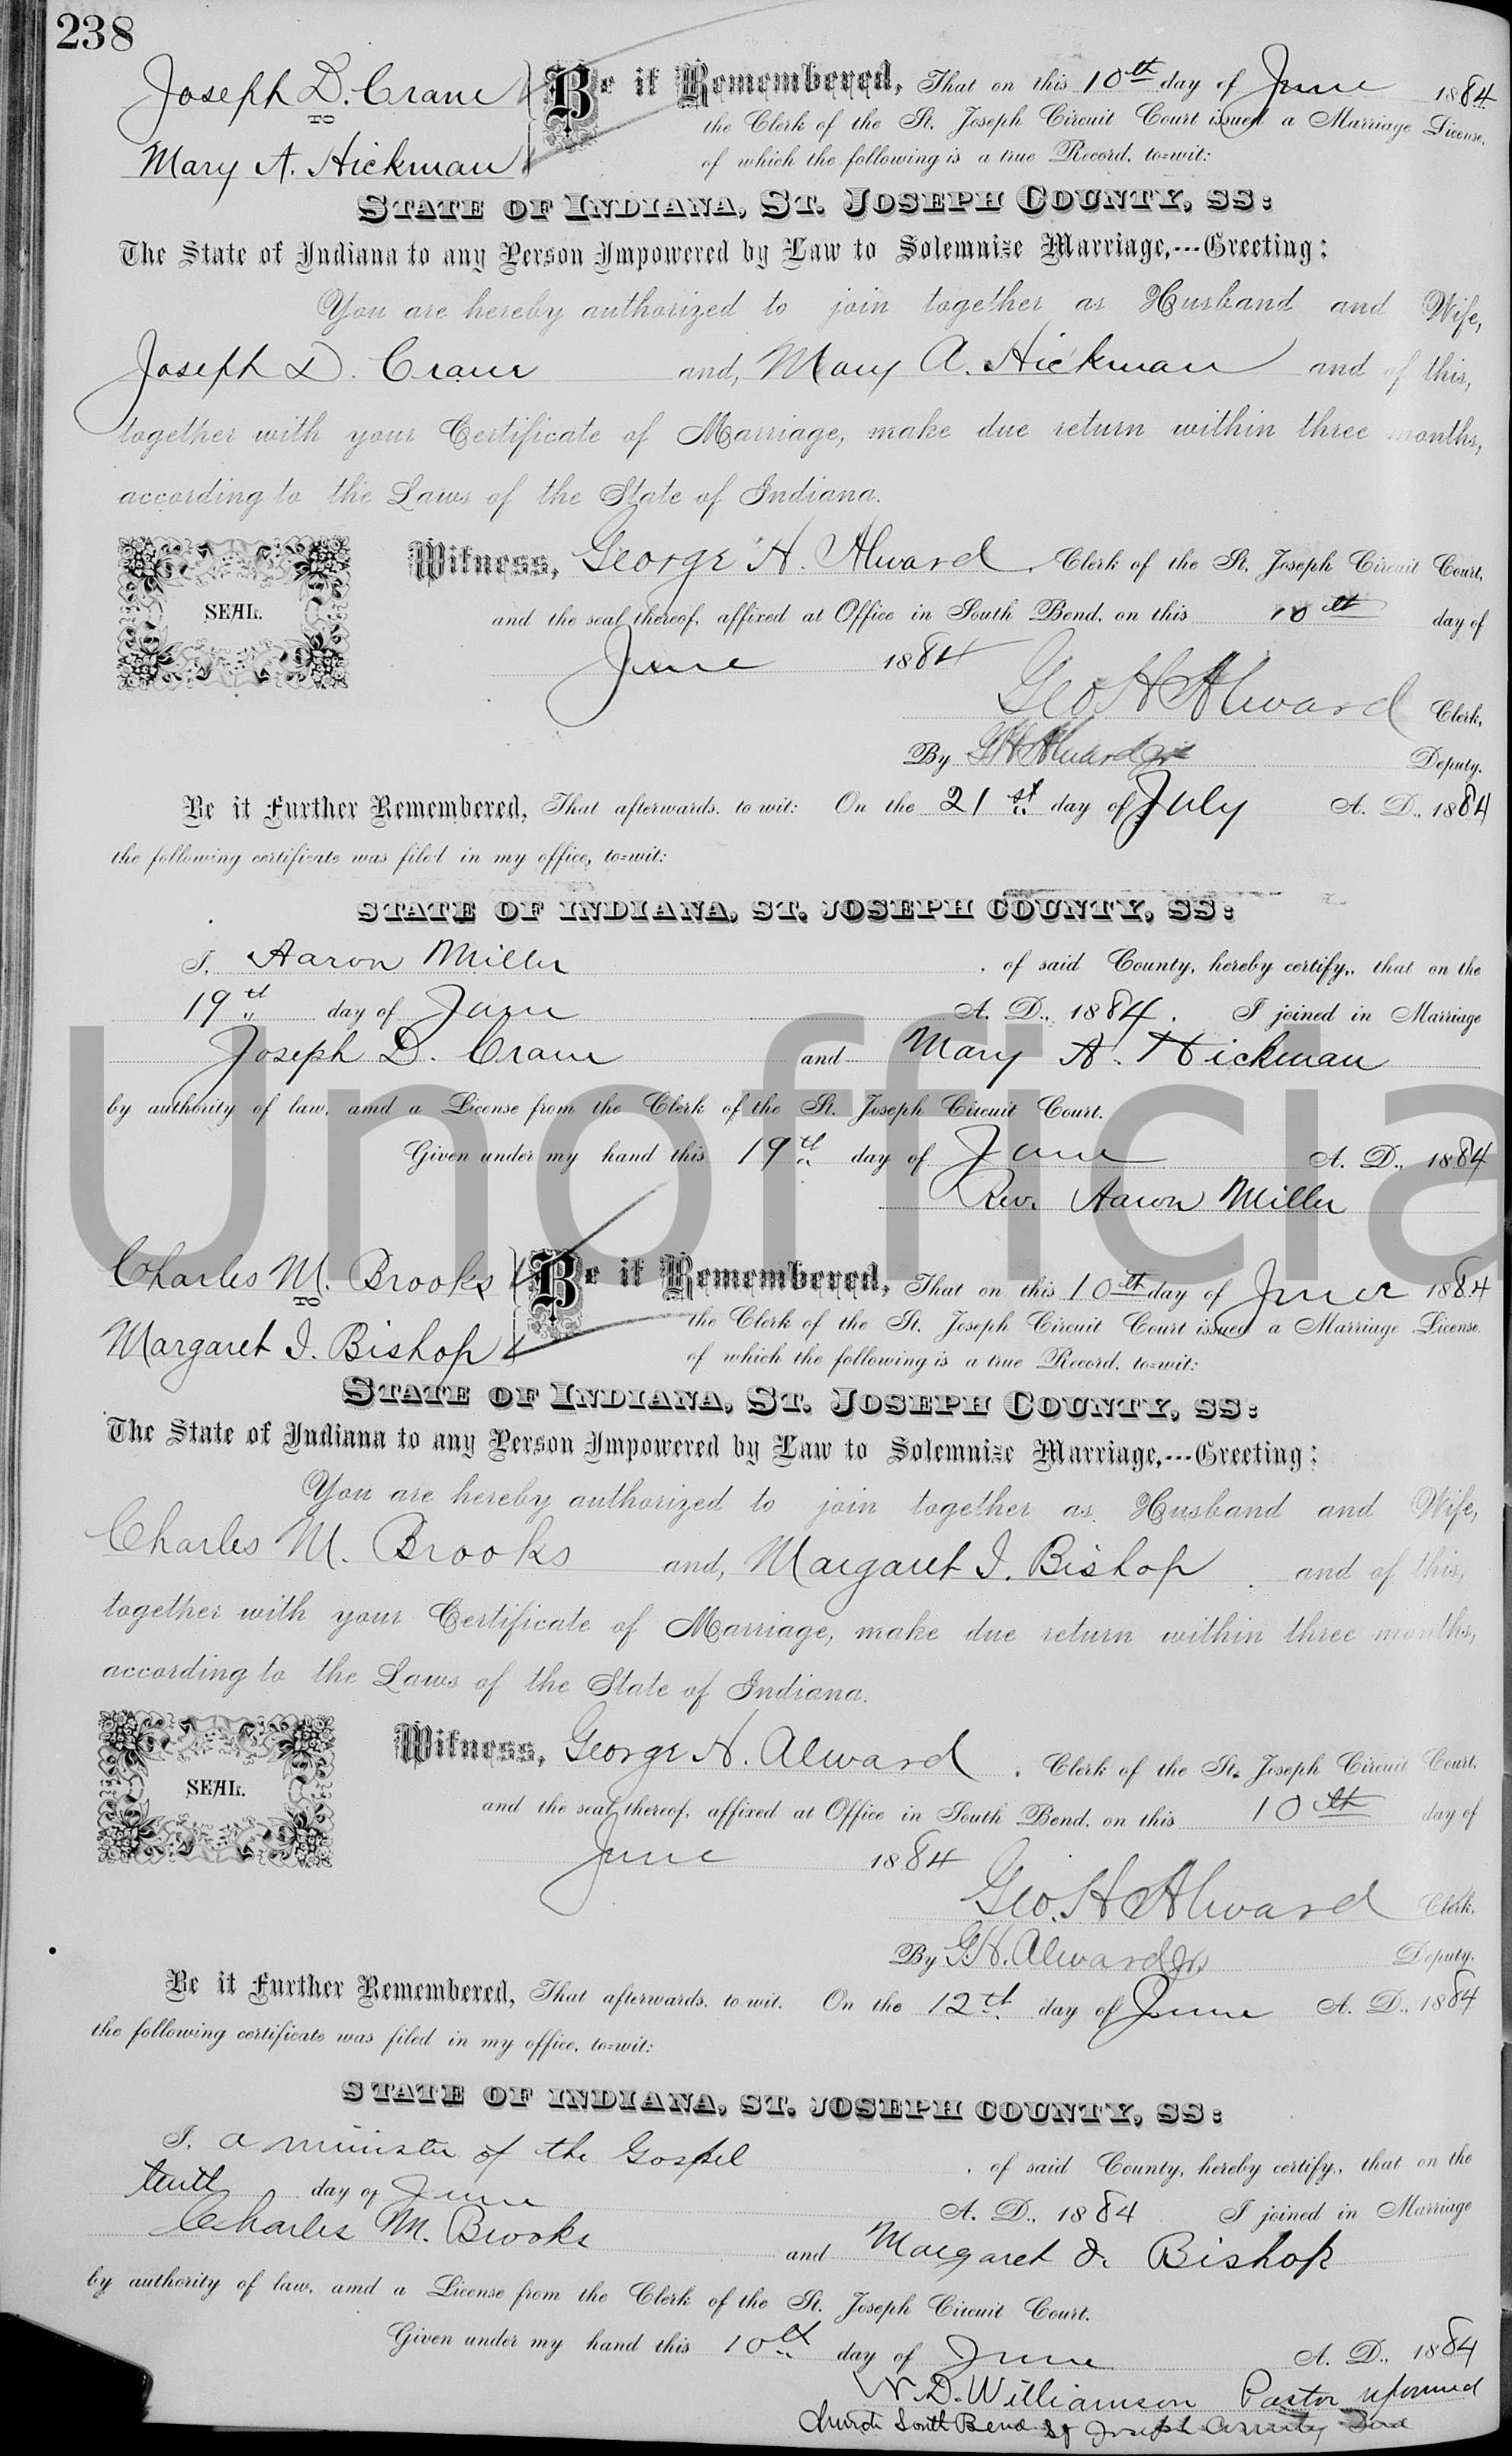 238
Joseph D. Crane
TO
Mary A. Hickman
Be it Remembered, That on this 10th day of June 1884
the Clerk of the St. Joseph Circuit Court issued a Marriage License.
of which the following is a true Record, to=wit:
STATE OF INDIANA, ST. JOSEPH COUNTY, SS:
The State of Indiana to any Person Impowered by Law to Solemnize Marriage,---Greeting:
You are hereby authorized to join together as Husband and Wife,
Joseph D. Crane and, Mary A. Hickman and of this,
together with your Certificate of Marriage, make due return within three months,
according to the Laws of the State of Indiana.
SEAL.
Witness, George H. Alward, Clerk of the St. Joseph Circuit Court,
and the seal thereof, affixed at Office in South Bend, on this 10th day of
June 1884
Geo H Alward Clerk,
By G H Alward Jr Deputy.
Be it Further Remembered, That afterwards, to wit: On the 21st day of July A. D., 1884
the following certificate was filed in my office, to=wit:
STATE OF INDIANA, ST. JOSEPH COUNTY, SS:
I, Aaron Miller, of said County, hereby certify, that on the
19th day of June A. D., 1884. I joined in Marriage
Joseph D. Crane and Mary A. Hickman
by authority of law, amd a License from the Clerk of the St. Joseph Circuit Court.
Given under my hand this 19th day of June A. D., 1884
Rev. Aaron Miller
Unofficia
Charles M. Brooks
TO
Margaret I. Bishop
Be it Remembered, That on this 10th day of June 1884
the Clerk of the St. Joseph Circuit Court issued a Marriage License
of which the following is a true Record, to=wit:
STATE OF INDIANA, ST. JOSEPH COUNTY, SS:
The State of Indiana to any Person Impowered by Law to Solemnize Marriage,---Greeting:
You are hereby authorized to join together as Husband and Wife,
Charles M. Brooks and, Margaret I. Bishop and of this,
together with your Certificate of Marriage, make due return within three months,
according to the Laws of the State of Indiana.
SEAL.
Witness, George H. Alward, Clerk of the St. Joseph Circuit Court,
and the seal thereof, affixed at Office in South Bend, on this 10th day of
June 1884
Geo. H Alward Clerk,
By G. H. Alward Jr Deputy.
Be it Further Remembered, That afterwards, to wit. On the 12th day of June A. D., 1884
the following certificate was filed in my office, to=wit:
STATE OF INDIANA, ST. JOSEPH COUNTY, SS:
I, a minister of the Gospel, of said County, hereby certify, that on the
tenth day of June A. D., 1884 I joined in Marriage
Charles M. Brooks and Margaret I. Bishop
by authority of law, amd a License from the Clerk of the St. Joseph Circuit Court.
Given under my hand this 10th day of June A. D., 1884
N. D. Williamson Pastor reformed
Church South Bend St Joseph County Ind